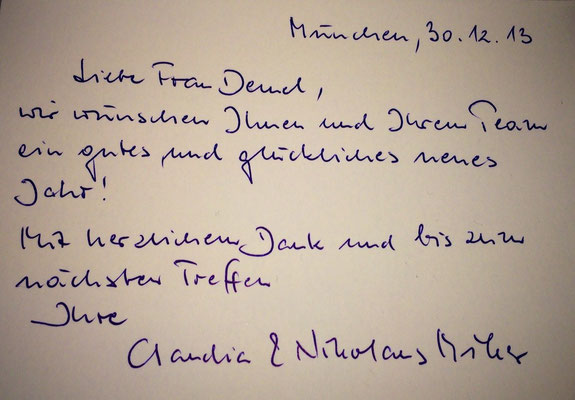 München, 30.12.13
Liebe Frau Demel,
wir wünschen Ihnen und Ihrem Team
ein gutes und glückliches neues
Jahr!
Mit herzlichem Dank und bis zum
nächsten Treffen
Ihre
Claudia & Nikolaus